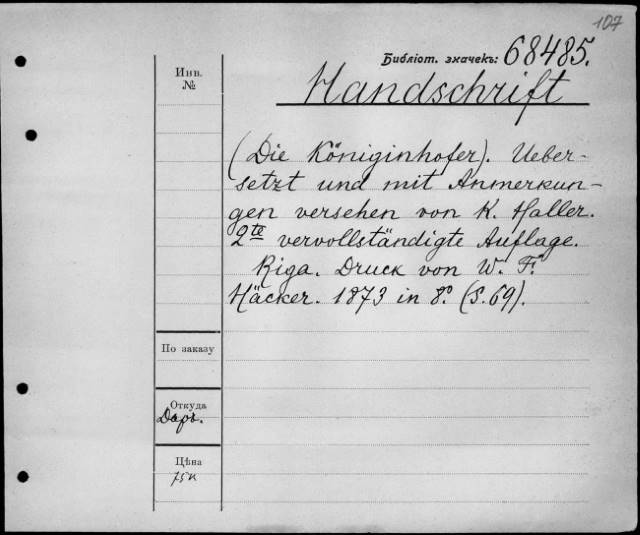 107
Библіот. значекъ: 68485.
Инв.
№
Handschrift
(Die Königinhofer). Ueber-
setzt und mit Anmerkun-
gen versehen von K. Haller.
2te vervollständigte Auflage.
Riga. Druck von W. F.
Häcker. 1873 in 8º. (S. 69).
По заказу
Откуда
Даръ.
Цѣна
75к